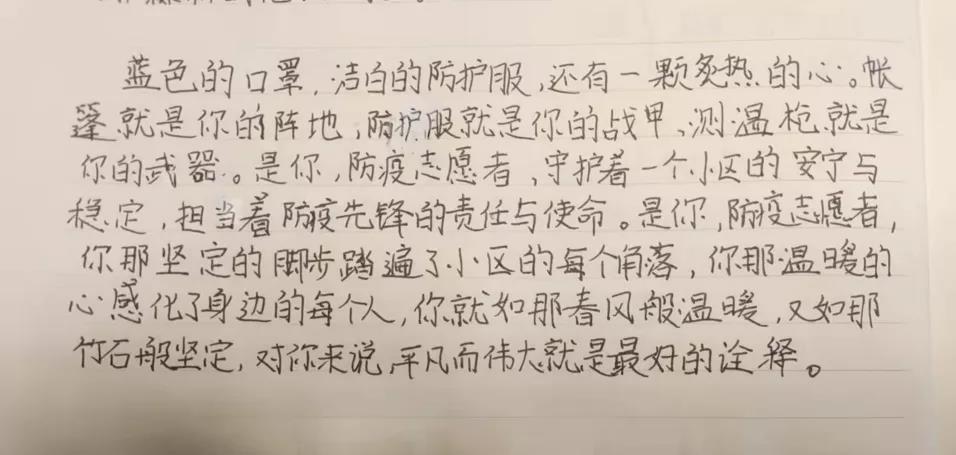 蓝色的口罩，洁白的防护服，还有一颗炙热的心。帐
篷就是你的阵地，防护服就是你的战甲、测温枪就是
你的武器。是你，防疫志愿者，守护着一个小区的安宁与
稳定，担当着防疫先锋的责任与使命。是你，防疫志愿者，
你那坚定的脚步踏遍了小区的每个角落，你那温暖的
心感化了身边的每个人，你就如那春风般温暖，又如那
竹石般坚定，对你来说，平凡而伟大就是最好的诠释。